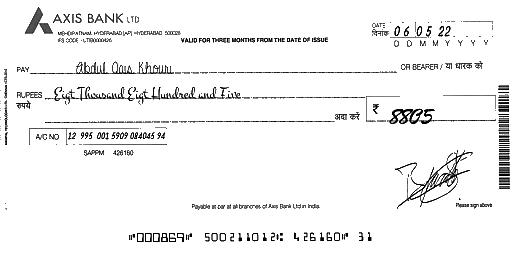 AXIS BANK LTD
MEHDIPATNAM, HYDERABAD (AP) HYDERABAD 500028
IFS CODE - UTIB0000426
VALID FOR THREE MONTHS FROM THE DATE OF ISSUE
DATE
दिनांक
06 05 22
D D M M Y Y Y Y
PAY Abdul Khouri
OR BEARER / या धारक को
RUPEES Eigt Thousand Eigt Hundred and Five
रुपये
अदा करें
₹ 8805
A/C NO 12 995 001 5909 084045 94
SAPPM 426160
Payable at par at all branches of Axis Bank Ltd in India.
Please sign above
"000869" 500211012: 426160" 31